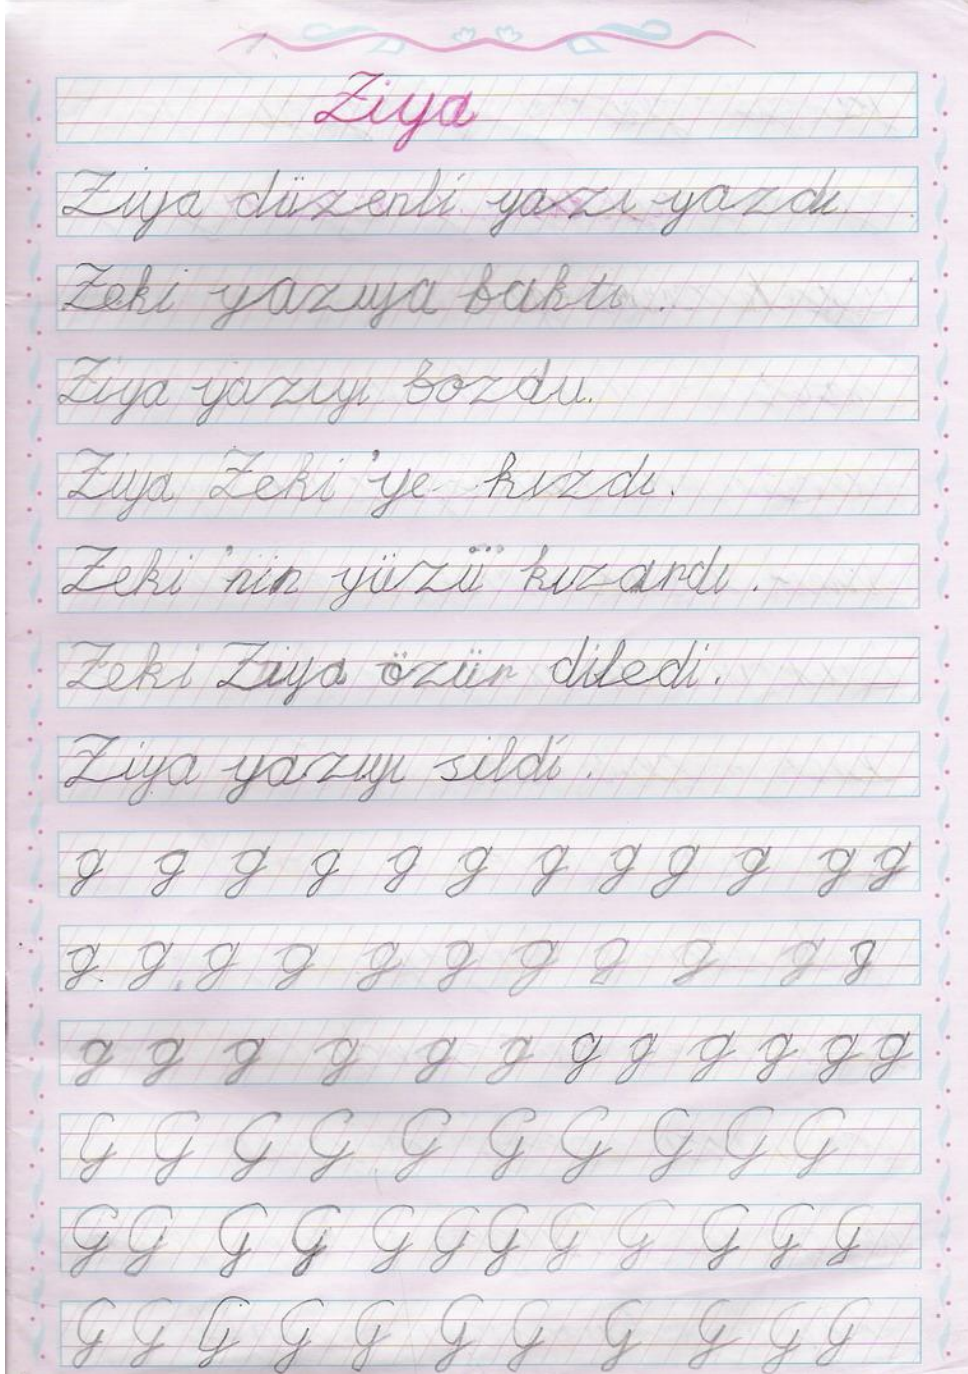 Ziya
Ziya düzenli yazı yazdı.
Zeki yazıya baktı.
Ziya yazıyı bozdu.
Ziya Zeki'ye kızdı.
Zeki'nin yüzü kızardı.
Zeki Ziya özür diledi.
Ziya yazıyı sildi.
g g g g g g g g g g g g
g g g g g g g g g g g
g g g g g g g g g g g g
G G G G G G G G G G
G G G G G G G G G G G G
G G G G G G G G G G G